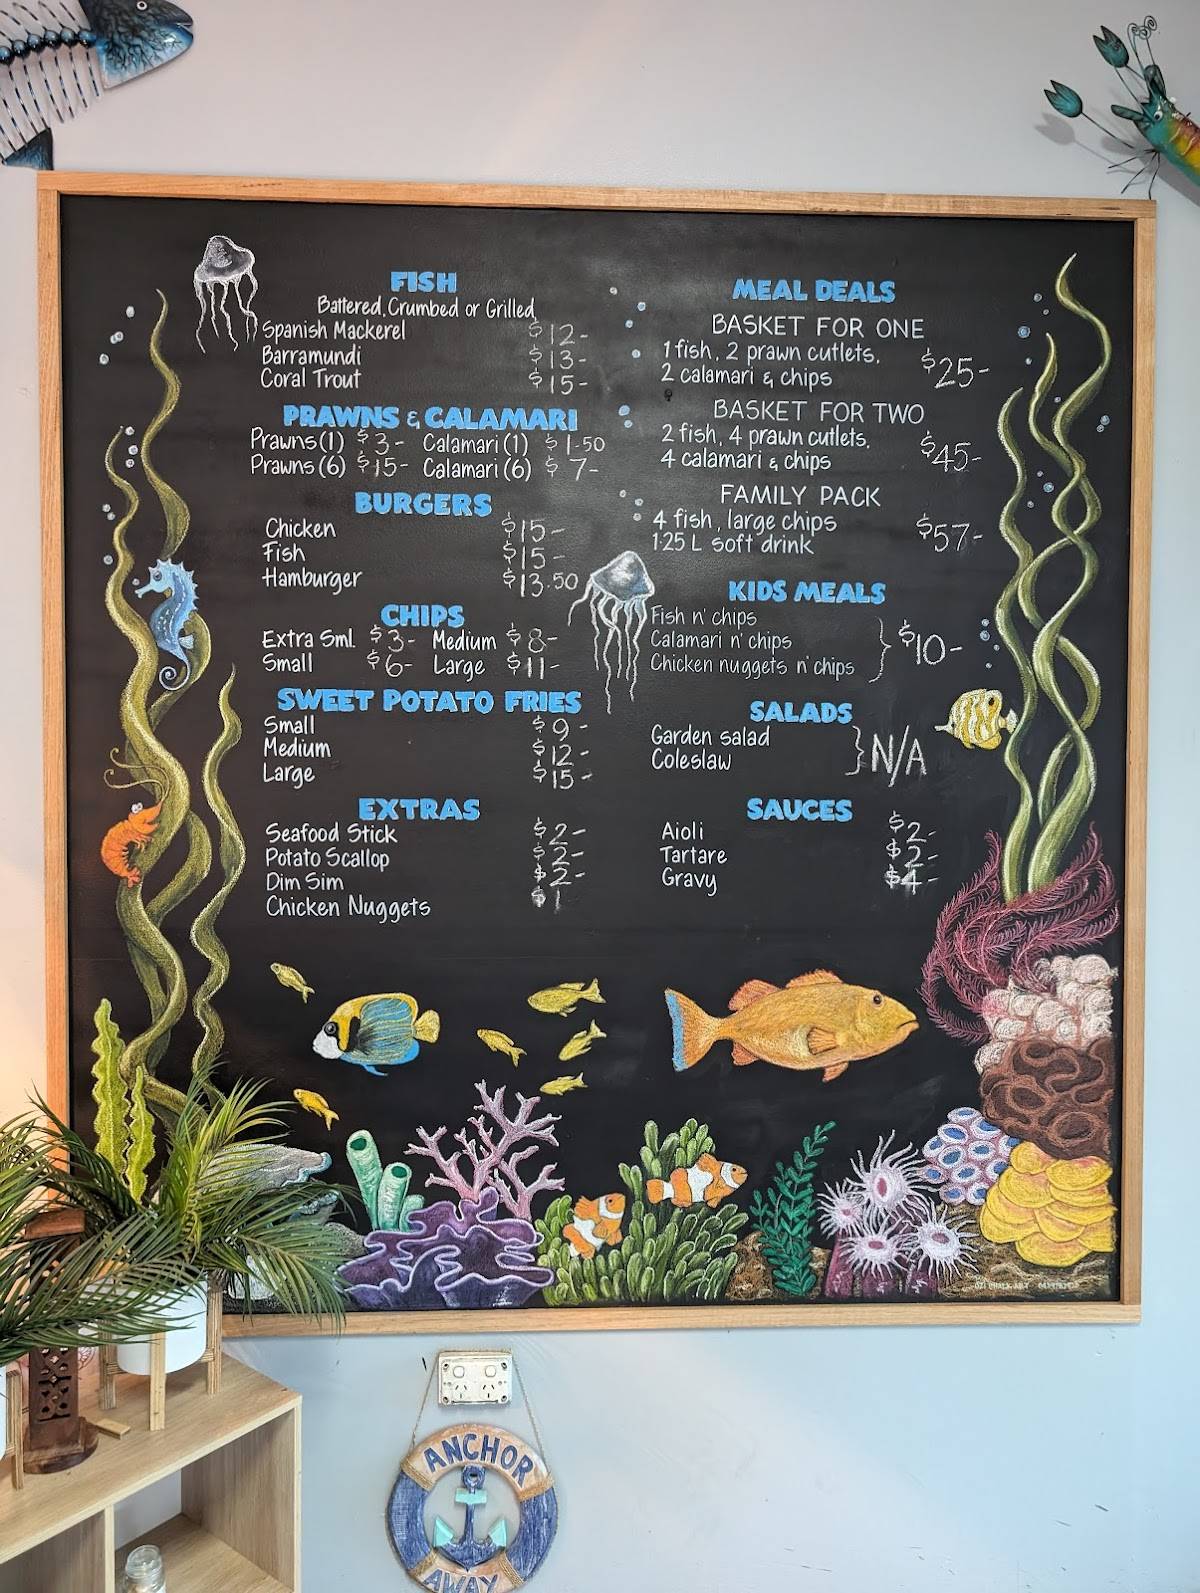 FISH
Battered, Crumbed or Grilled
Spanish Mackerel $12-
Barramundi $13-
Coral Trout $15-
PRAWNS & CALAMARI
Prawns (1) $3- Calamari (1) $1-50
Prawns (6) $15- Calamari (6) $7-
BURGERS
Chicken $15-
Fish $15-
Hamburger $13.50
CHIPS
Extra Sml. $3- Medium $8-
Small $6- Large $11-
SWEET POTATO FRIES
Small $9-
Medium $12-
Large $15-
EXTRAS
Seafood Stick $2-
Potato Scallop $2-
Dim Sim $2-
Chicken Nuggets $1
MEAL DEALS
BASKET FOR ONE
1 fish, 2 prawn cutlets,
2 calamari & chips $25-
BASKET FOR TWO
2 fish, 4 prawn cutlets,
4 calamari & chips $45-
FAMILY PACK
4 fish, large chips
1.25 L soft drink $57-
KIDS MEALS
Fish n' chips
Calamari n' chips $10-
Chicken nuggets n' chips
SALADS
Garden salad
Coleslaw N/A
SAUCES
Aioli $2-
Tartare $2-
Gravy $4-
ANCHOR
AWAY